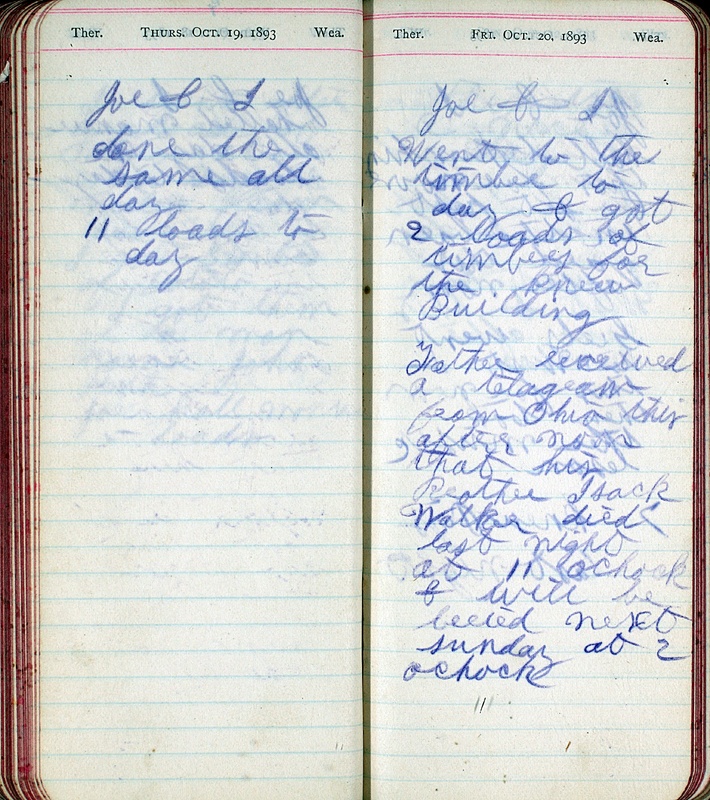 Ther. THURS. OCT. 19, 1893 Wea.
Joe & I
done the
same all
day
11 loads to
day
Ther. FRI. OCT. 20, 1893 Wea.
Joe & I
Went to the
timber to
day & got
2 loads of
timber for
the knew
Building
Father received
a telagram
from Ohio this
after noon
that his
Brother Isack
Walker died
last night
at 11 ochock
& will be
beried next
sunday at 2
ochock